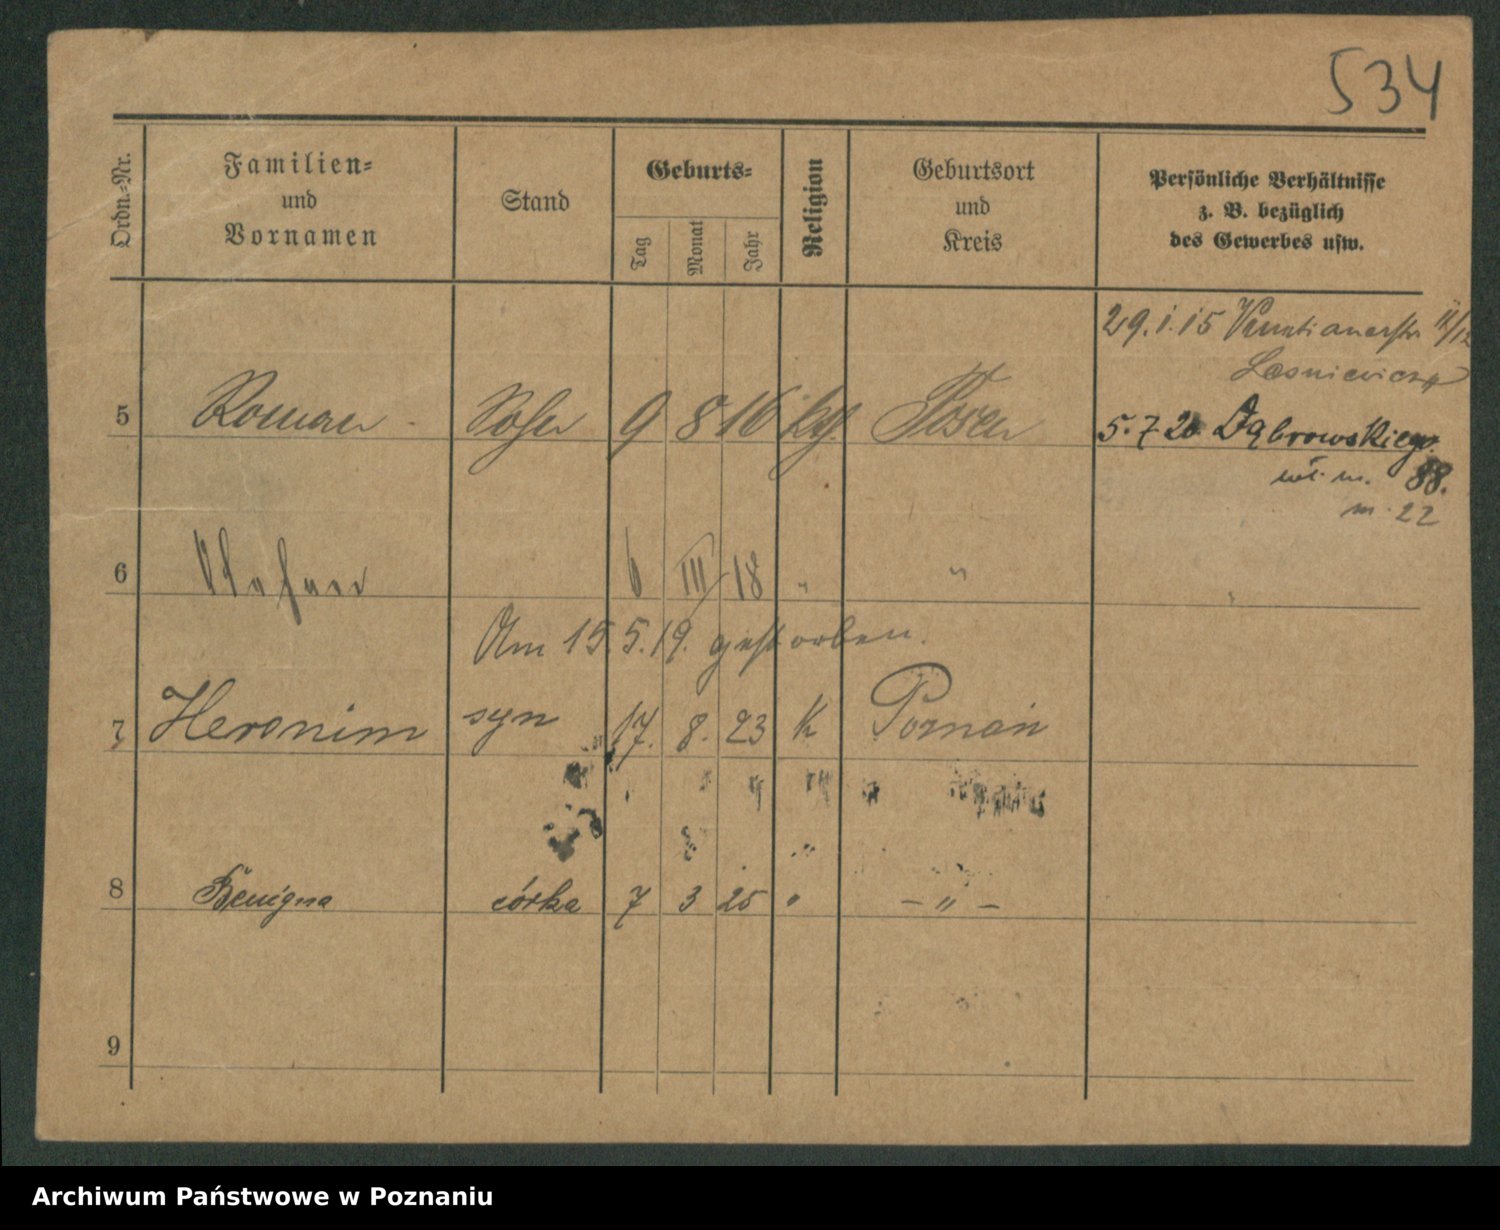 534
Ordn.-Nr.
Familien-
und
Vornamen
Stand
Geburts-
Tag
Monat
Jahr
Religion
Geburtsort
und
Kreis
Persönliche Verhältnisse
z. B. bezüglich
des Gewerbes usw.
29.1.15 Venetianerstr.
5 Roman Sohn 9 8 16 kth. Posen
5.7 20 Dąbrowskiego
wł. m. 88.
m. 22
6 6 III 18 " "
Am 15.5.19. gestorben.
7 Heronim syn 17. 8. 23 K Poznań
8 Benigna córka 7 3 25 " - " -
9
Archiwum Państwowe w Poznaniu